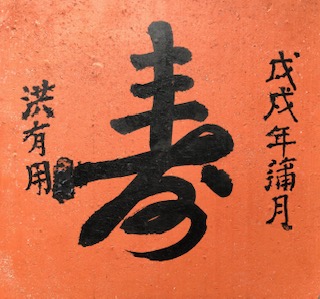 戊戌年蒲月
寿
洪有用